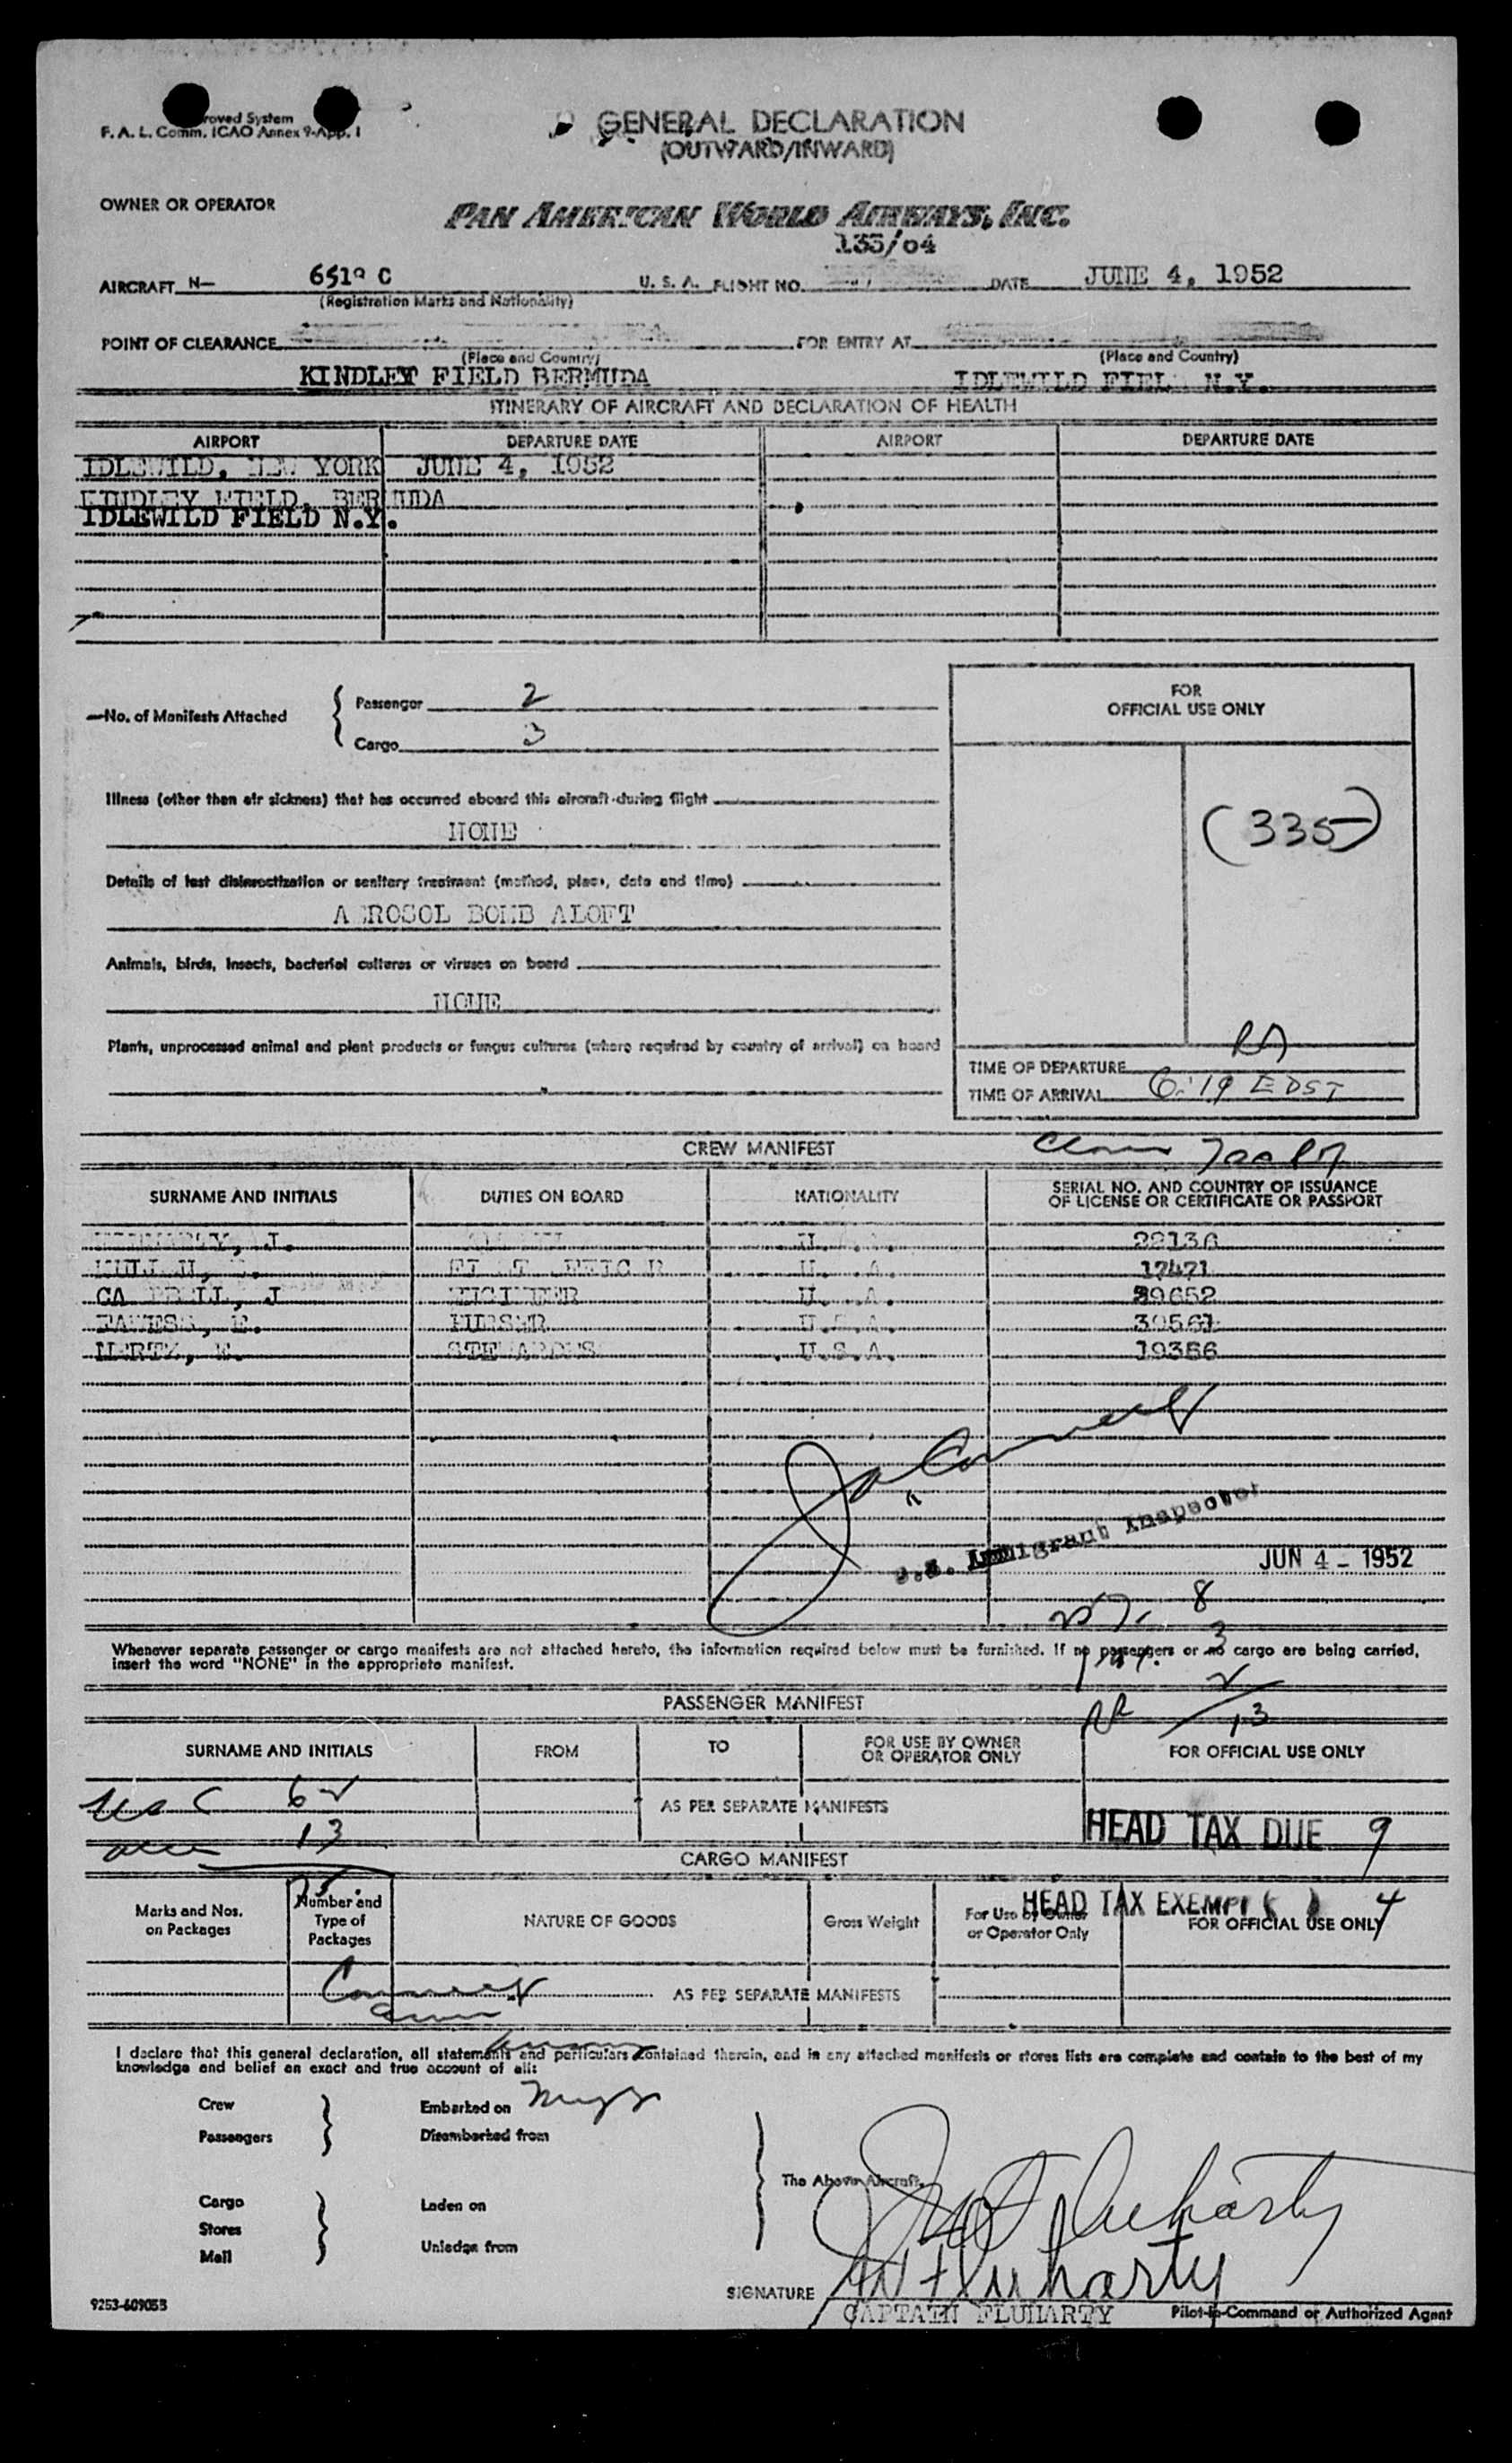 roved System
F. A. L. Comm. ICAO Annex 9-App. I
GENERAL DECLARATION
(OUTWARD/INWARD)
OWNER OR OPERATOR
PAN AMERICAN WORLD AIRWAYS, INC.
135/04
AIRCRAFT N— 6519 C U. S. A. FLIGHT NO. DATE JUNE 4, 1952
(Registration Marks and Nationality)
POINT OF CLEARANCE FOR ENTRY AT
(Place and Country) (Place and Country)
KINDLEY FIELD BERMUDA IDLEWILD FIEL N.Y.
ITINERARY OF AIRCRAFT AND DECLARATION OF HEALTH
AIRPORT DEPARTURE DATE AIRPORT DEPARTURE DATE
IDLEWILD, NEW YORK JUNE 4, 1952
KINDLEY FIELD, BERMUDA
IDLEWILD FIELD N.Y.
No. of Manifests Attached
Passenger 2
Cargo 3
FOR
OFFICIAL USE ONLY
(335)
Illness (other than air sickness) that has occurred aboard this aircraft during flight
NONE
Details of last disinsectization or sanitary treatment (method, place, date and time)
A EROSOL BOMB ALOFT
Animals, birds, insects, bacterial cultures or viruses on board
NONE
Plants, unprocessed animal and plant products or fungus cultures (where required by country of arrival) on board
TIME OF DEPARTURE
TIME OF ARRIVAL 6:19 EDST
CREW MANIFEST
SURNAME AND INITIALS DUTIES ON BOARD NATIONALITY SERIAL NO. AND COUNTRY OF ISSUANCE
OF LICENSE OR CERTIFICATE OR PASSPORT
J. 22136
17471
J ENGINEER 39652
E. PURSER U.S.A. 39561
MERTZ, STEWARDESS U.S.A. 19356
U.S. Immigrant Inspector
JUN 4 - 1952
8
3
2
13
Whenever separate passenger or cargo manifests are not attached hereto, the information required below must be furnished. If no passengers or no cargo are being carried,
insert the word "NONE" in the appropriate manifest.
PASSENGER MANIFEST
SURNAME AND INITIALS FROM TO FOR USE BY OWNER
OR OPERATOR ONLY FOR OFFICIAL USE ONLY
62
13
75
AS PER SEPARATE MANIFESTS
HEAD TAX DUE 9
CARGO MANIFEST
HEAD TAX EXEMPT ( ) 4
Marks and Nos.
on Packages
Number and
Type of
Packages
NATURE OF GOODS
Gross Weight
For Use by Owner
or Operator Only
FOR OFFICIAL USE ONLY
AS PER SEPARATE MANIFESTS
I declare that this general declaration, all statements and particulars contained therein, and in any attached manifests or stores lists are complete and contain to the best of my
knowledge and belief an exact and true account of all:
Crew
Passengers
Embarked on
Disembarked from
The Above Aircraft.
Cargo
Stores
Mail
Laden on
Unladen from
SIGNATURE
CAPTAIN FLUHARTY
Pilot-in-Command or Authorized Agent
9253-60905B